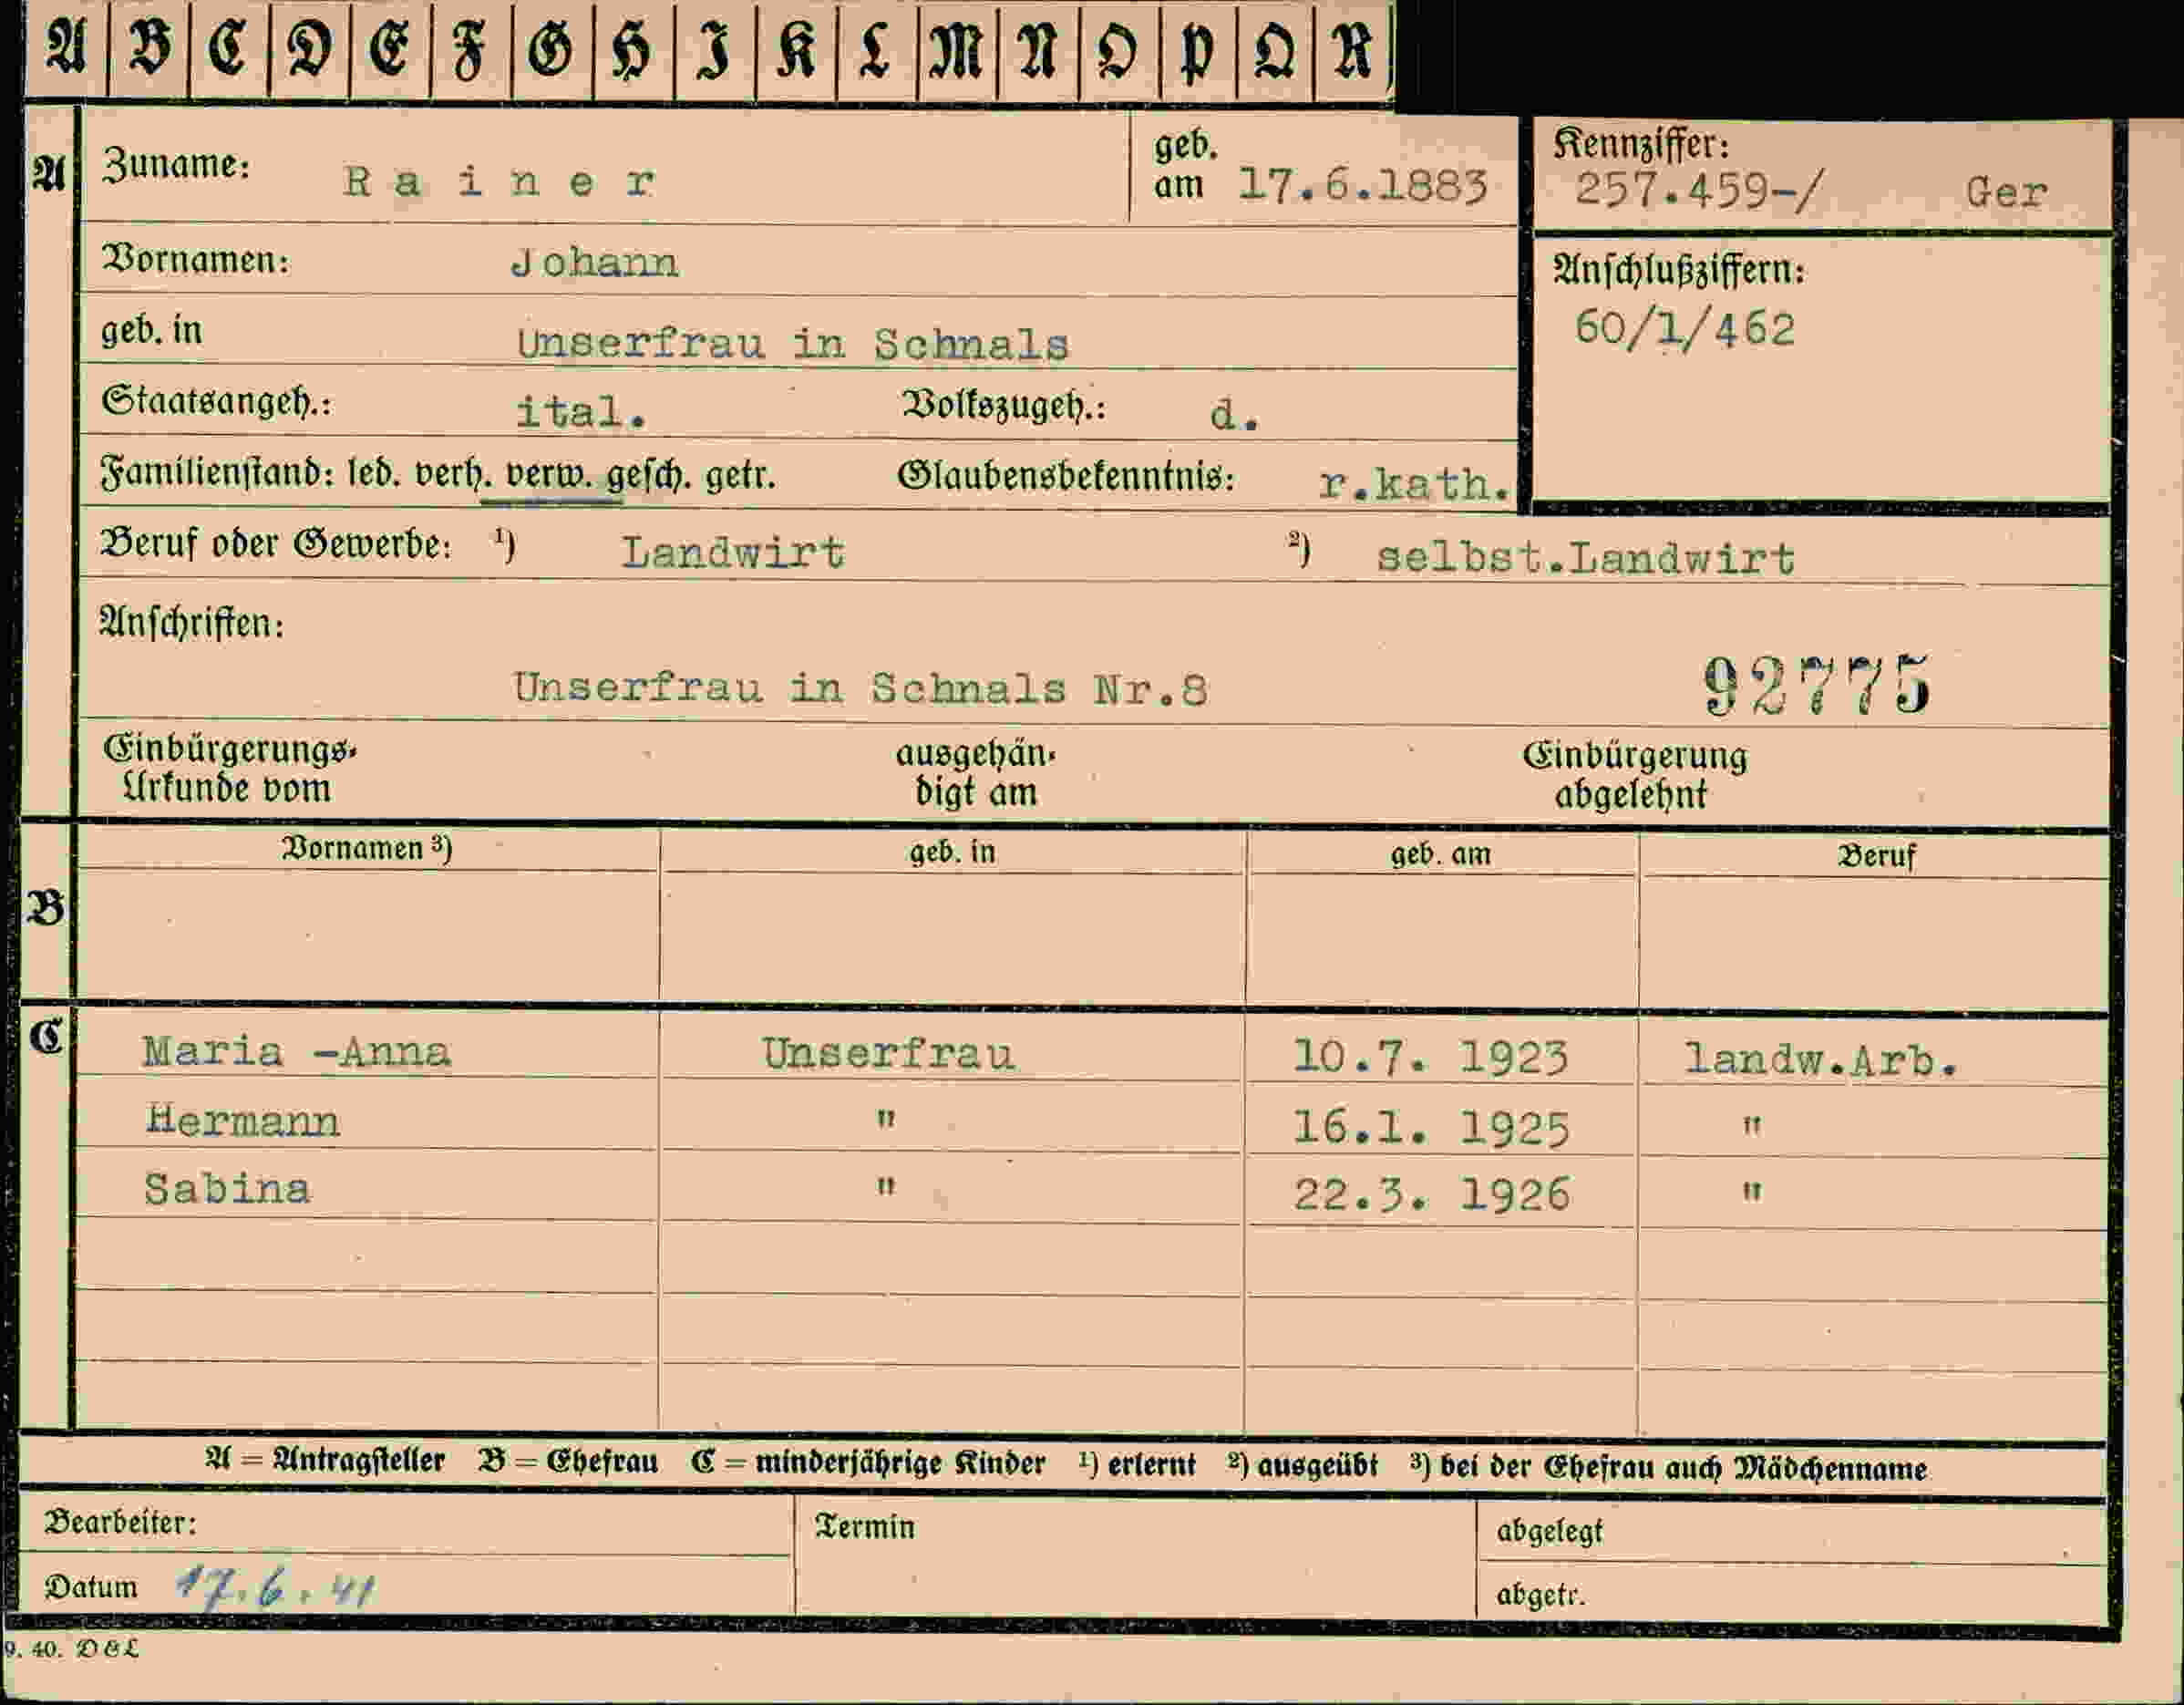 A B C D E F G H I K L M N O P Q R
A Zuname: Rainer geb. am 17.6.1883
Kennziffer: 257.459-/ Ger
Vornamen: Johann
Anschlußziffern: 60/1/462
geb. in Unserfrau in Schnals
Staatsangeh.: ital. Volkszugeh.: d.
Familienstand: led. verh. verw. gesch. getr. Glaubensbekenntnis: r.kath.
Beruf oder Gewerbe: ¹) Landwirt ²) selbst.Landwirt
Anschriften:
Unserfrau in Schnals Nr.8 92775
Einbürgerungs-Urkunde vom ausgehändigt am Einbürgerung abgelehnt
Vornamen ³) geb. in geb. am Beruf
B
C Maria -Anna Unserfrau 10.7. 1923 landw.Arb.
Hermann " 16.1. 1925 "
Sabina " 22.3. 1926 "
A = Antragsteller B = Ehefrau C = minderjährige Kinder ¹) erlernt ²) ausgeübt ³) bei der Ehefrau auch Mädchenname
Bearbeiter: Termin abgelegt
Datum 17.6.41 abgetr.
9. 40. D&L